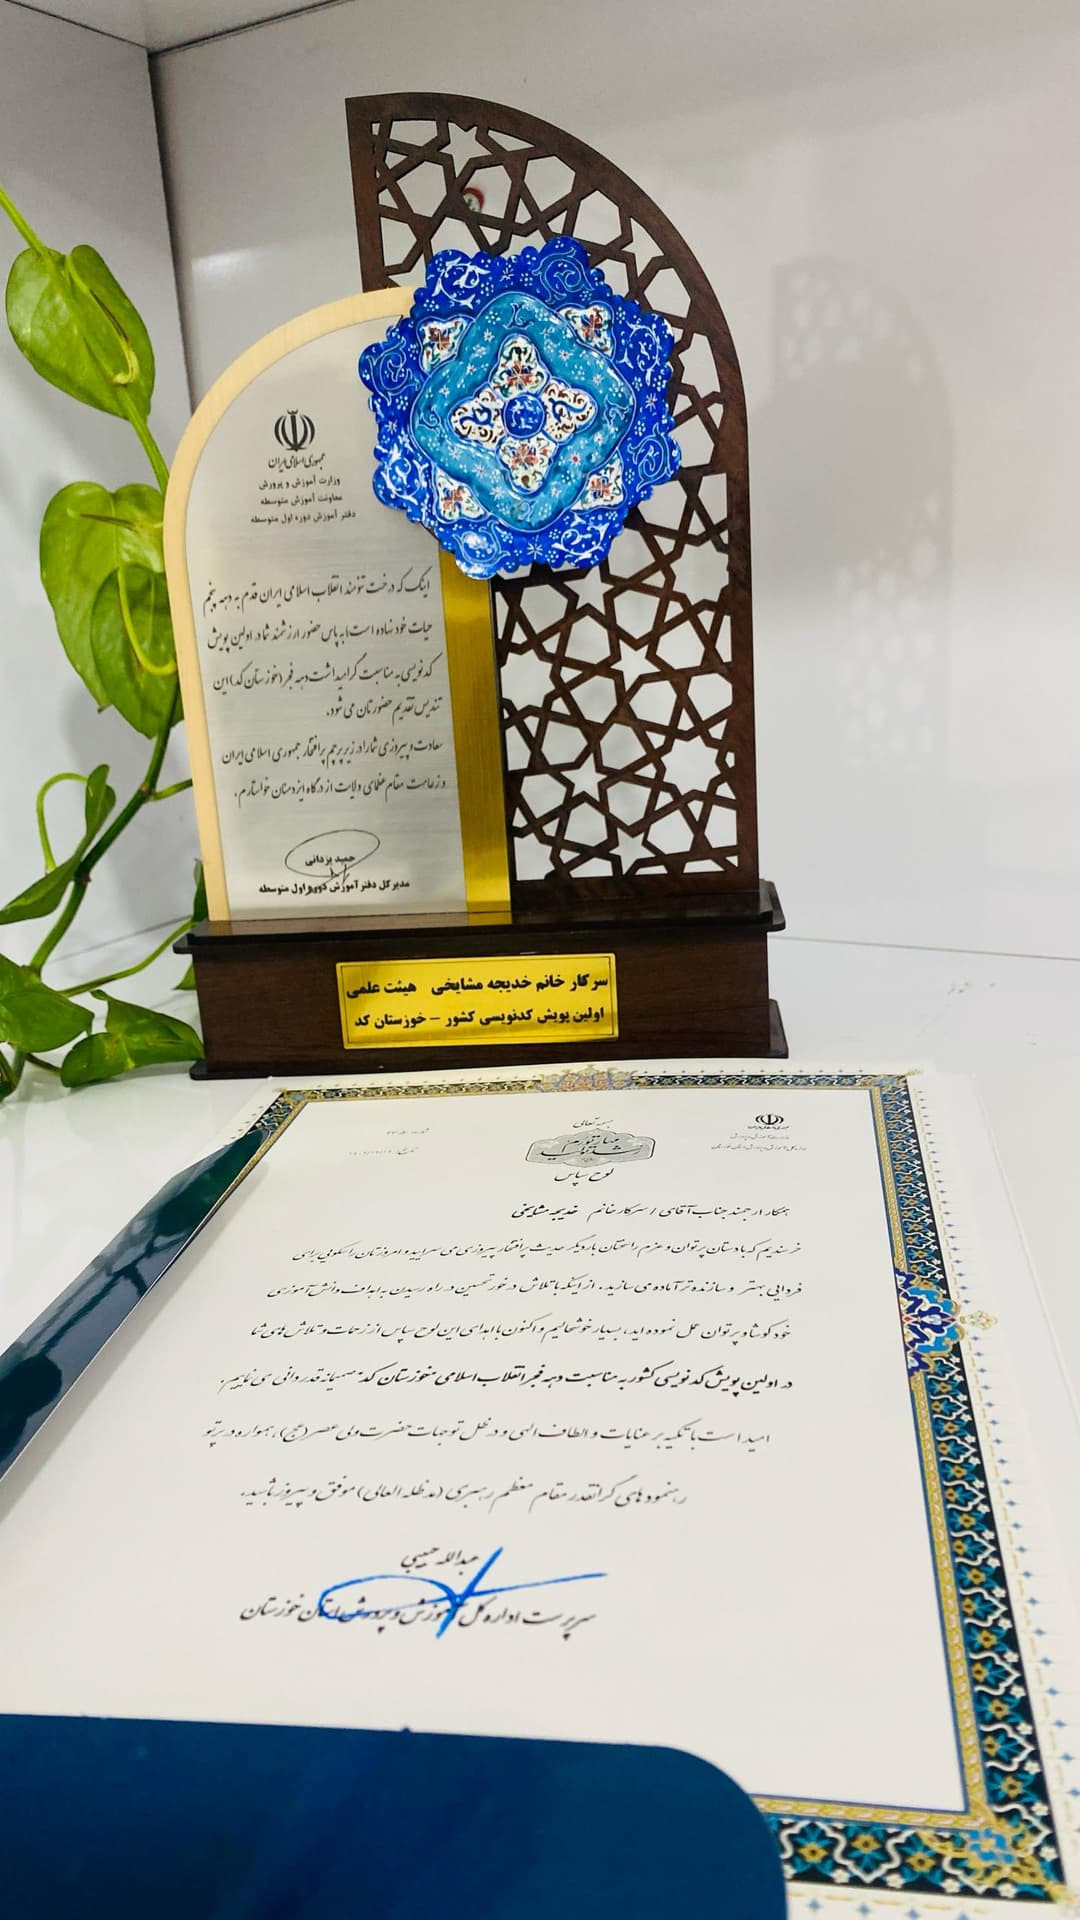 جمهوری اسلامی ایران
وزارت آموزش و پرورش
معاونت آموزش متوسطه
دفتر آموزش دوره اول متوسطه
اینک که درخت تنومند انقلاب اسلامی ایران قدم به دهه پنجم
حیات خود نهاده است به پاس حضور ارزشمند شما در اولین پویش
کدنویسی به مناسبت گرامیداشت دهه فجر (خوزستان کد) این
تندیس تقدیم حضورتان می شود.
سعادت و پیروزی شما را در زیر پرچم پرافتخار جمهوری اسلامی ایران
و زعامت مقام عظمای ولایت از درگاه ایزد منان خواستارم.
حمید یزدانی
مدیرکل دفتر آموزش دوره اول متوسطه
سرکار خانم خدیجه مشایخی هیئت علمی
اولین پویش کدنویسی کشور – خوزستان کد
بسمه تعالی
لوح سپاس
همکار ارجمند جناب آقای / سرکار خانم خدیجه مشایخی
خرسندیم که با دستان پرتوان و عزم راسختان بار دیگر حدیث پرافتخار پیروزی می سرایید و امروزتان را سکویی برای
فردایی بهتر و سازنده تر آماده می سازید. از اینکه با تلاش در خور تحسین در راه رسیدن به اهداف دانش آموزی
خود کوشا و پرتوان عمل نموده اید، بسیار خوشحالیم و اکنون با اهدای این لوح سپاس از زحمات و تلاش های شما
در اولین پویش کدنویسی کشور به مناسبت دهه فجر انقلاب اسلامی "خوزستان کد" صمیمانه قدردانی می نماییم.
امید است با تکیه بر عنایات و الطاف الهی و در ظل توجهات حضرت ولی عصر (عج)، همواره در پرتو
رهنمودهای گرانقدر مقام معظم رهبری (مدظله العالی) موفق و پیروز باشید.
عبدالله حبیبی
سرپرست اداره کل آموزش و پرورش استان خوزستان